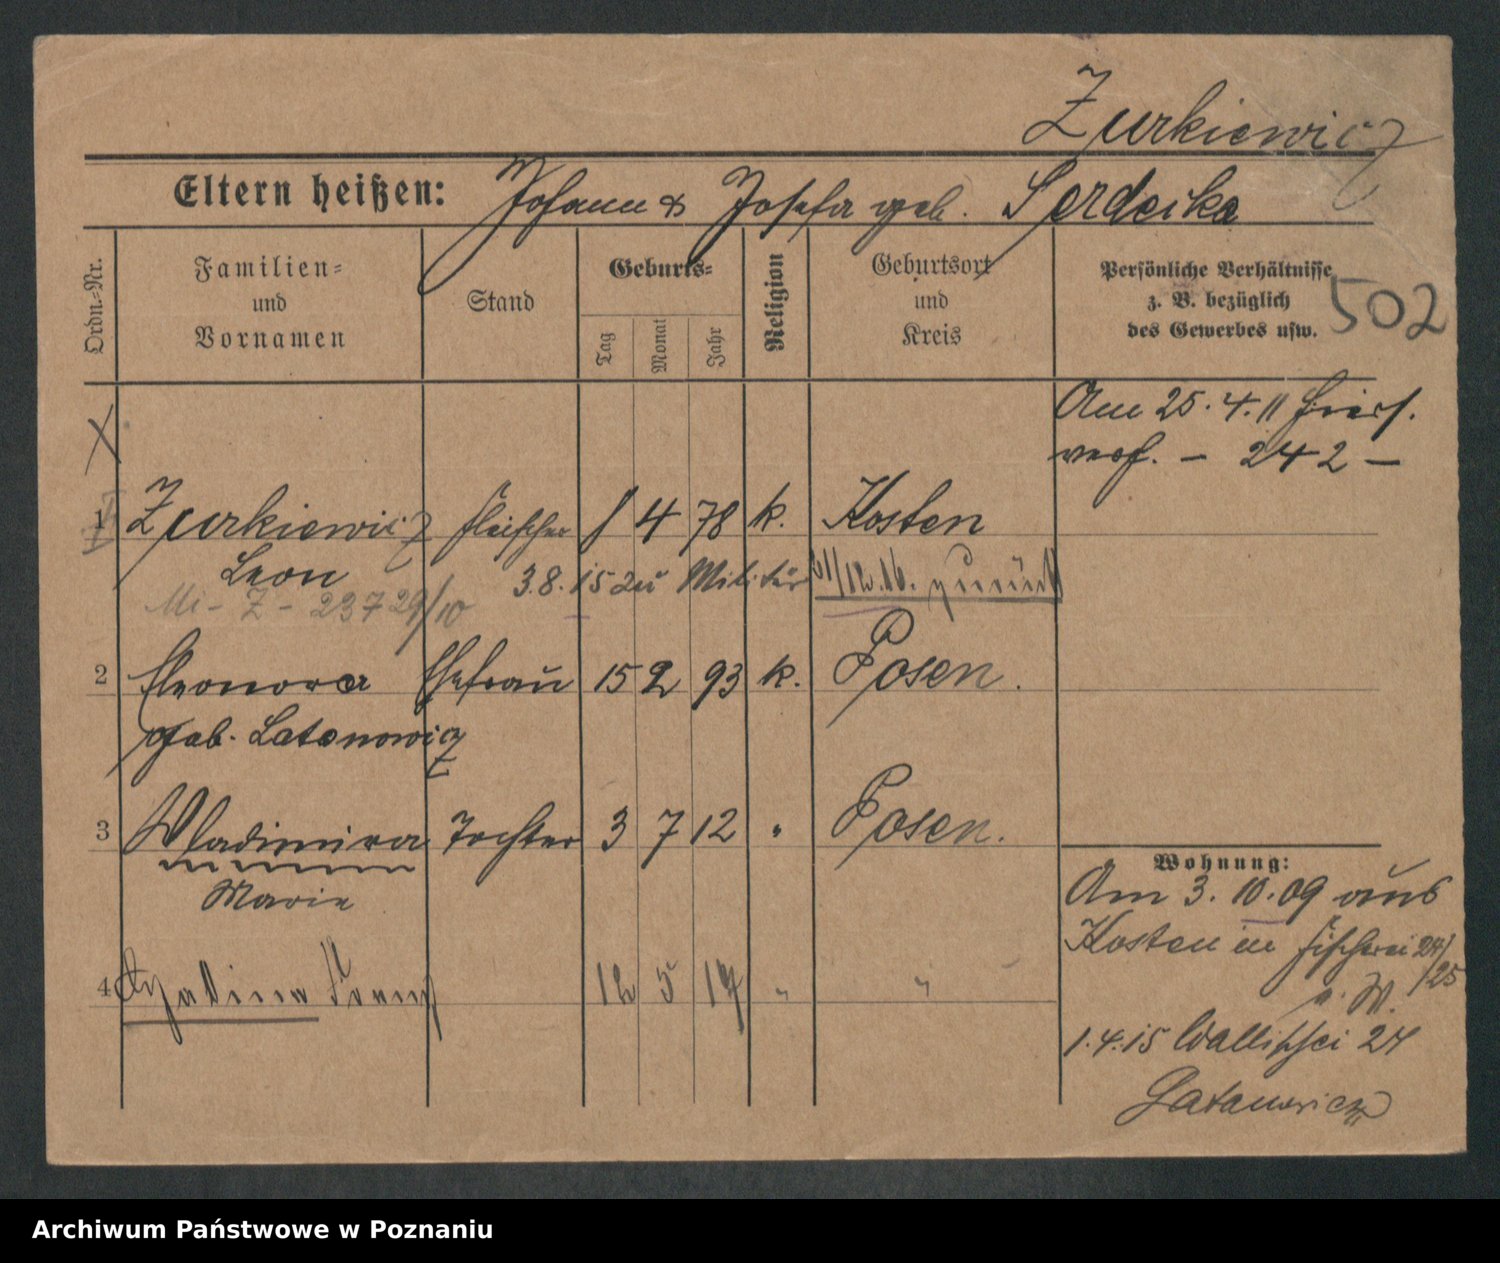 Zurkiewicz
Eltern heißen: Johann & Josefa geb. Serdeika
Ordn.-Nr.
Familien- und Vornamen
Stand
Geburts-
Tag
Monat
Jahr
Religion
Geburtsort und Kreis
Persönliche Verhältnisse
z. B. bezüglich
des Gewerbes usw.
502
Am 25.4.11 hiers.
verh. - 242 -
1 Zurkiewicz Fleischer 1 4 78 k. Kosten
Leon 3.8.15 zu Militär 21/12.16. zurück
Mi - Z - 237 29/10
2 Eleonora Ehefrau 15 2 93 k. Posen.
geb. Latanowicz
3 Wladimira Tochter 3 7 12 " Posen.
Marie
4 12 5 14 " "
Wohnung:
Am 3.10.09 aus
Kosten in Fischerei 24/25
v. W.
1.4.15 Wallischei 24
Latanowicz